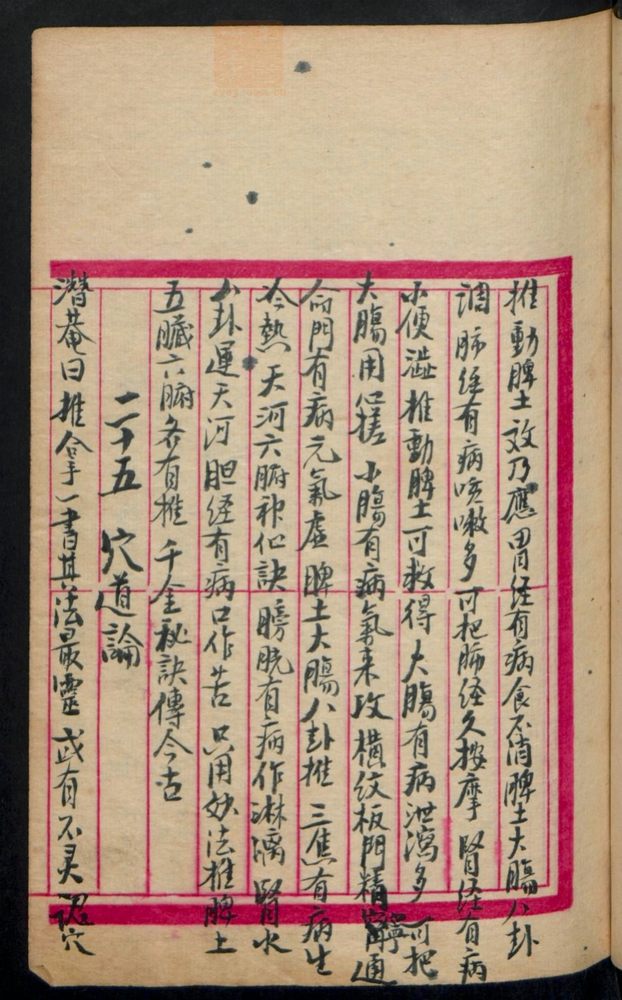 推動脾土效乃應 胃经有病食不消 脾土大腸八卦
調 肺经有病咳嗽多 可把肺经久按摩 腎经有病
小便澁 推動脾土可救得 大腸有病泄瀉多 可把
大腸用心搓 小腸有病氣來攻 橫纹板門精寧通
命門有病元氣虛 脾土大腸八卦推 三焦有病生
冷熱 天河六腑神仙訣 膀胱有病作淋漓 腎水
八卦運天河 胆经有病口作苦 只用妙法推脾土
五臟六腑各有推 千金秘訣傳今古
二十五 穴道論
潛菴曰推拿一書其法最靈 或有不灵 認穴